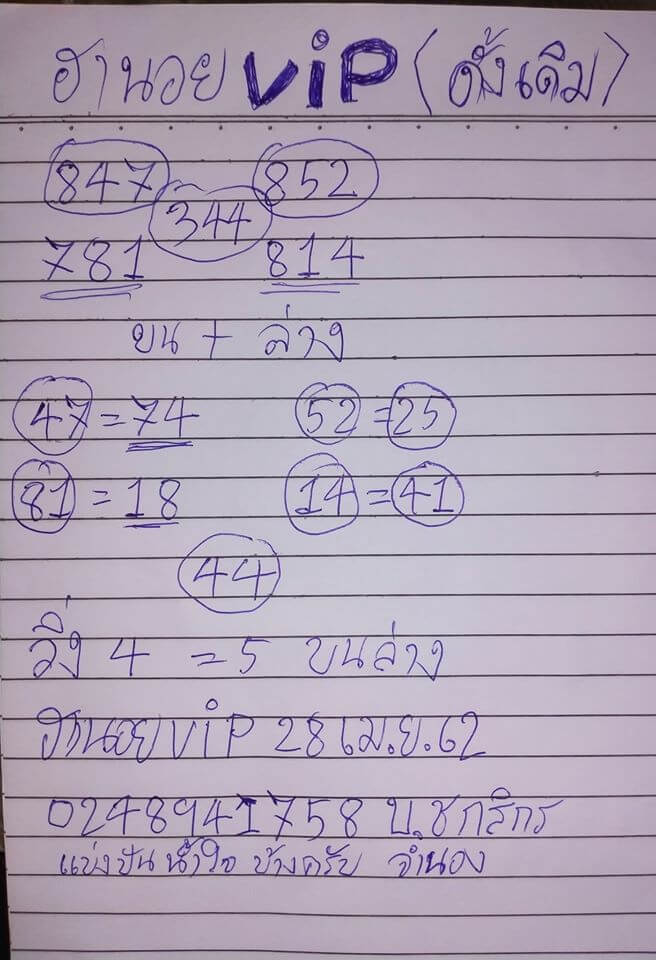 ฮานอย ViP (ดั้งเดิม)
847 852
344
781 814
บน + ล่าง
47 = 74 52 = 25
81 = 18 14 = 41
44
วิ่ง 4 = 5 บนล่าง
ฮานอย ViP 28 เม.ย. 62
0248941758 บ.ชกสิกร
แบ่งปันน้ำใจบ้างครับ จำนอง